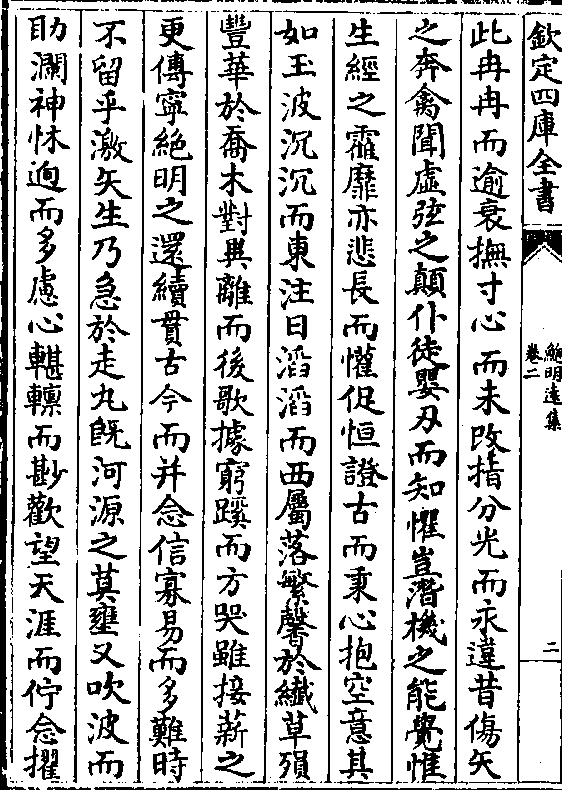 欽定四庫全書
鮑明遠集
卷二
二
此冉冉而逾衰撫寸心而未改指分光而永違昔傷矢
之奔禽聞虛弦之顛仆徒嬰刃而知懼豈潛機之能覺惟
生經之靃靡亦悲長而懽促恒證古而秉心抱空意其
如玉波沉沉而東注日滔滔而西屬落繁馨於纖草殞
豐華於喬木對與離而後歌據窮蹊而方哭雖接薪之
更傳寧絶明之還續貫古今而并念信寡易而多難時
不留乎激矢生乃急於走丸既河源之莫壅又吹波而
助瀾神怵逈而多慮心而尠歡望天涯而佇念擢